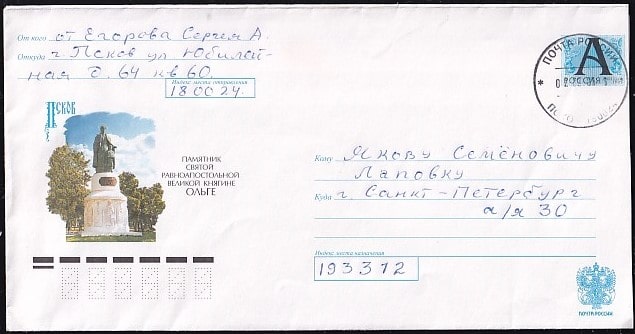 От кого от Егорова Сергея А.
Откуда г. Псков ул Юбилей-
ная д. 64 кв 60
Индекс места отправления
180024.
Псков
ПАМЯТНИК
СВЯТОЙ
РАВНОАПОСТОЛЬНОЙ
ВЕЛИКОЙ КНЯГИНЕ
ОЛЬГЕ
ПОЧТА РОССИИ
А
РОССИЯ
Кому Якову Семёновичу
Лаповку
Куда г. Санкт-Петербург
а/я 30
Индекс места назначения
193312
ПОЧТА РОССИИ